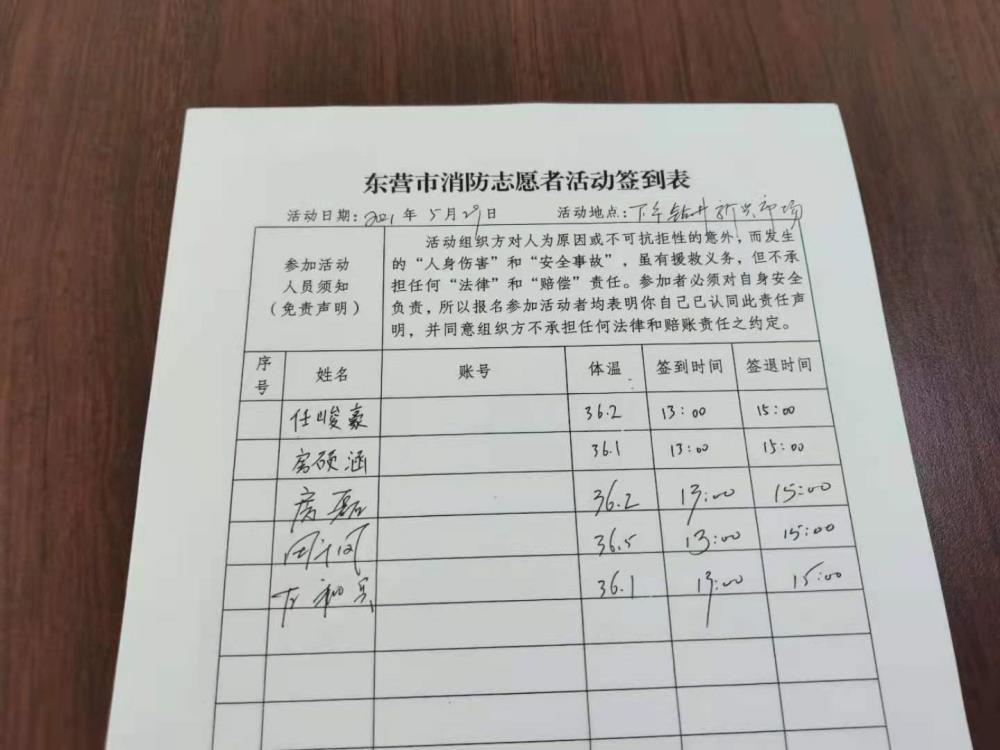 东营市消防志愿者活动签到表
活动日期：2021年5月29日 活动地点：下午钻井新兴市场
参加活动
人员须知
（免责声明）
活动组织方对人为原因或不可抗拒性的意外，而发生
的“人身伤害”和“安全事故”，虽有援救义务，但不承
担任何“法律”和“赔偿”责任。参加者必须对自身安全
负责，所以报名参加活动者均表明你自己已认同此责任声
明，并同意组织方不承担任何法律和赔账责任之约定。
序号 姓名 账号 体温 签到时间 签退时间
任峻豪 36.2 13:00 15:00
房硕涵 36.1 13:00 15:00
房磊 36.2 13:00 15:00
36.5 13:00 15:00
36.1 13:00 15:00